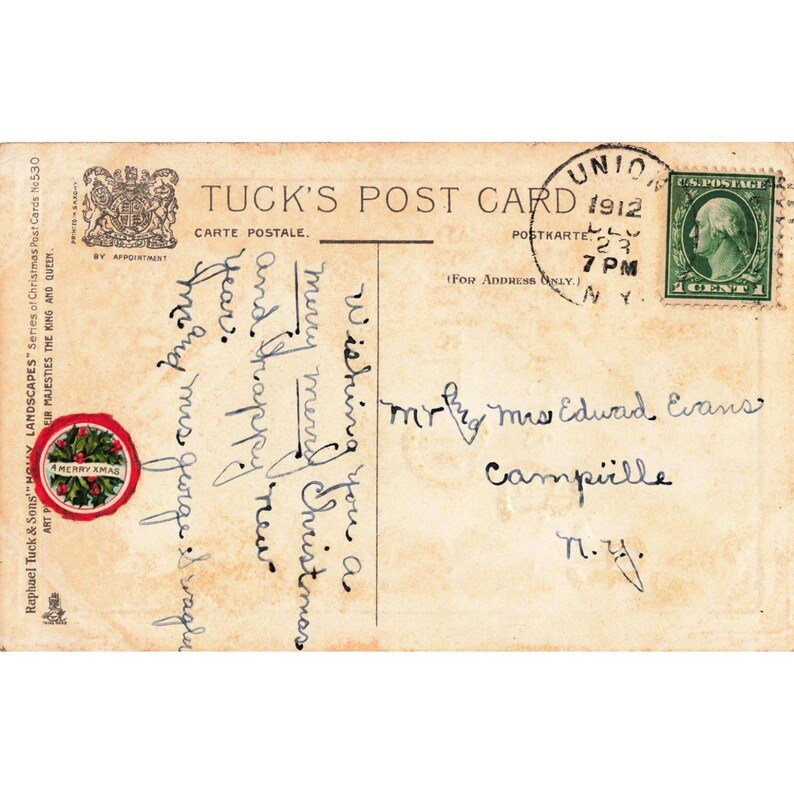 TUCK'S POST CARD
CARTE POSTALE.
POSTKARTE.
(FOR ADDRESS ONLY.)
BY APPOINTMENT
PRINTED IN SAXONY
Raphael Tuck & Sons' "HOLLY LANDSCAPES" Series of Christmas Post Cards No 530
ART EIR MAJESTIES THE KING AND QUEEN.
A MERRY XMAS
UNION
1912
DEC
23
7 PM
N.Y.
U.S. POSTAGE
1 CENT 1
Wishing you a
merry merry Christmas
and happy new
year.
Mr & Mrs George
Mr & Mrs Edward Evans
Campville
N.Y.